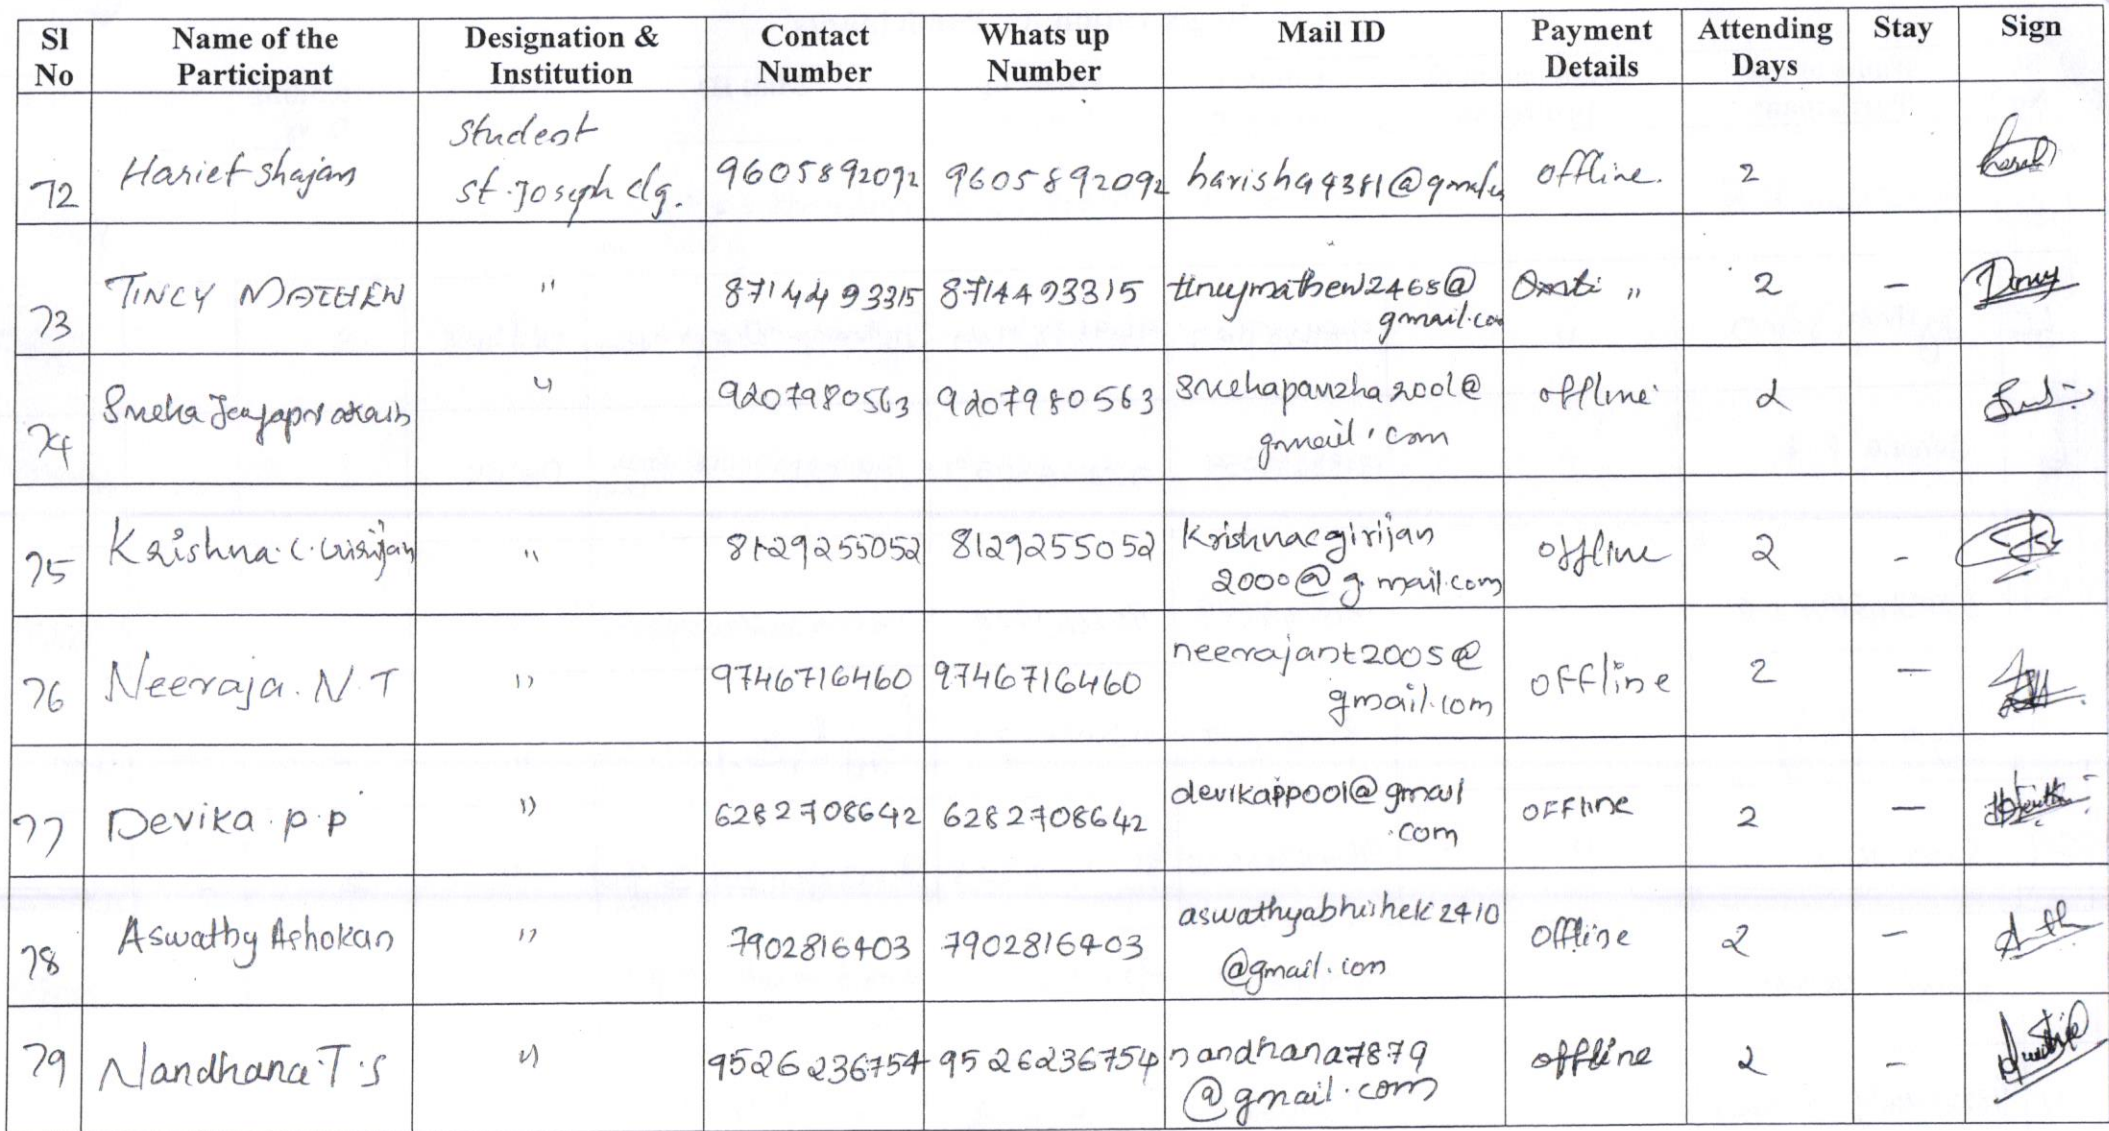 Sl No Name of the Participant Designation & Institution Contact Number Whats up Number Mail ID Payment Details Attending Days Stay Sign
72 Hariet Shajan Student St. Joseph clg. 9605892092 9605892092 offline. 2
73 TINCY MATHEW " 8714493315 8714493315 tincymathew2465@gmail.com " 2 –
74 Sneha Jeyaprakash " 9207980563 9207980563 snehapanzha2001@gmail.com offline 2
75 Krishna.C.Girijan " 8129255052 8129255052 Krishnacgirijan2000@g.mail.com offline 2 -
76 Neeraja.N.T " 9746716460 9746716460 neerajant2005@gmail.com offline 2 –
77 Devika.p.p " 6282708642 6282708642 devikappoo1@gmail.com OFFline 2 –
78 Aswathy Ashokan " 7902816403 7902816403 aswathyabhishek2410@gmail.com Offline 2 –
79 Nandhana.T.S " 9526236754 9526236754 nandhana7879@gmail.com offline 2 –